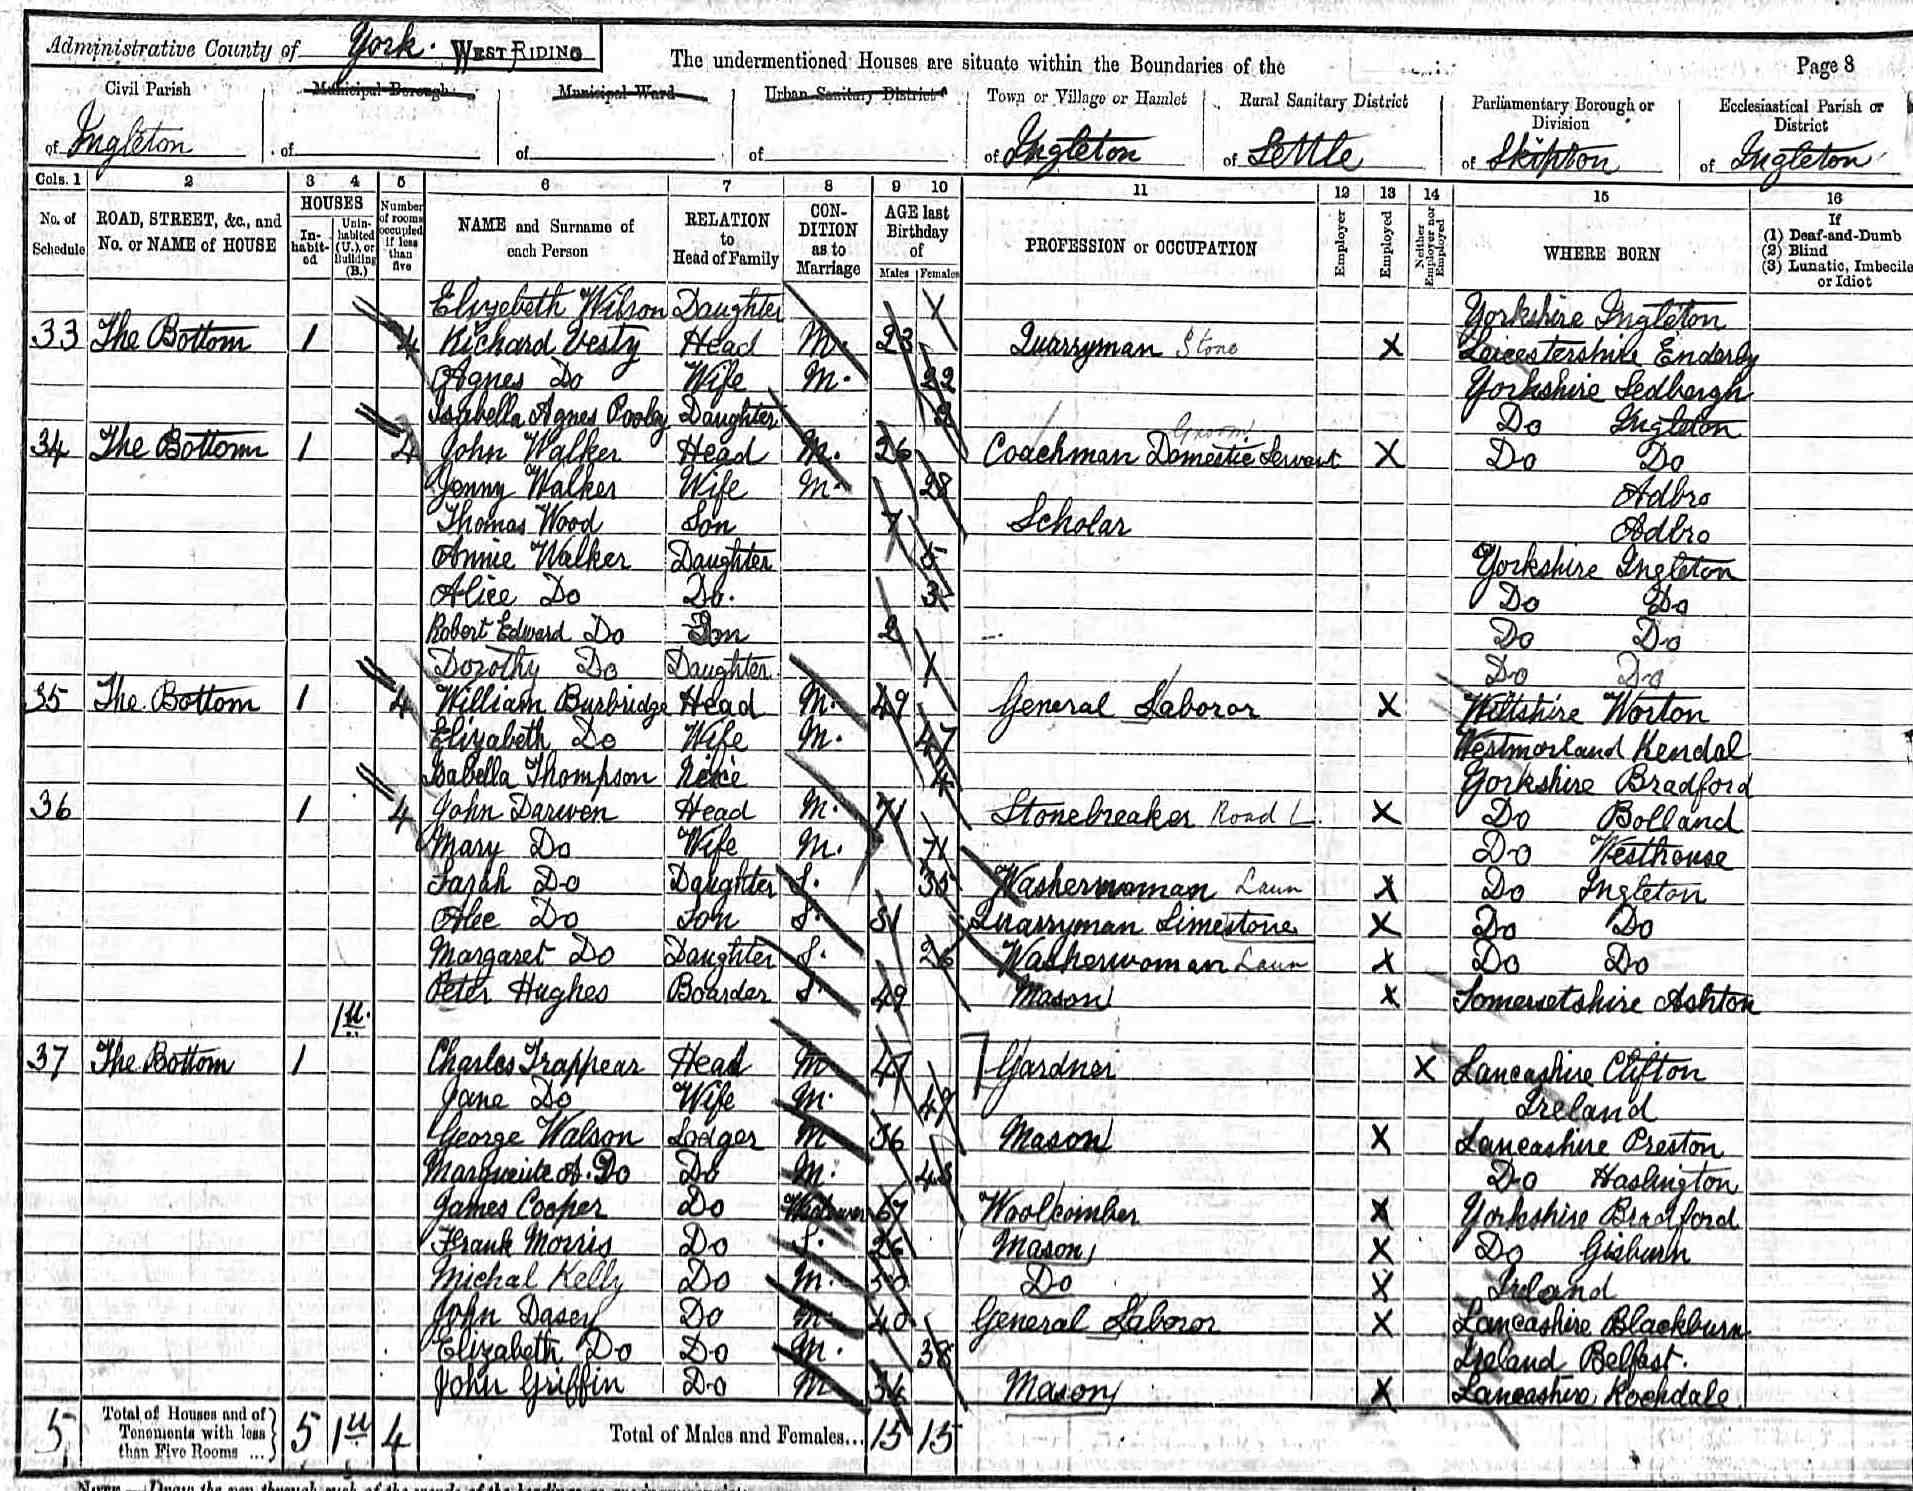 Administrative County of York. WEST RIDING
The undermentioned Houses are situate within the Boundaries of the
Page 8
Civil Parish of Ingleton
Municipal Borough of
Municipal Ward of
Urban Sanitary District of
Town or Village or Hamlet of Ingleton
Rural Sanitary District of Settle
Parliamentary Borough or Division of Skipton
Ecclesiastical Parish or District of Ingleton
Cols. 1 2 3 4 5 6 7 8 9 10 11 12 13 14 15 16
No. of Schedule
ROAD, STREET, &c., and No. or NAME of HOUSE
HOUSES
In-habit-ed
Unin-habited (U.), or Building (B.)
Number of rooms occupied if less than five
NAME and Surname of each Person
RELATION to Head of Family
CON-DITION as to Marriage
AGE last Birthday of
Males Females
PROFESSION or OCCUPATION
Employer
Employed
Neither Employer nor Employed
WHERE BORN
If
(1) Deaf-and-Dumb
(2) Blind
(3) Lunatic, Imbecile or Idiot
Elizebeth Wilson Daughter 1 Yorkshire Ingleton
33 The Bottom 1 4 Richard Vesty Head M. 23 Quarryman Stone X Leicestershire Enderby
Agnes Do Wife M. 22 Yorkshire Sedbergh
Isabella Agnes Daughter Do Ingleton
34 The Bottom 1 4 John Walker Head M. 26 Coachman Domestic Servant Groom X Do Do
Jenny Walker Wife M. 28 Adbro
Thomas Wood Son 7 Scholar Adbro
Annie Walker Daughter 5 Yorkshire Ingleton
Alice Do Do. 3 Do Do
Robert Edward Do Son 2 Do Do
Dorothy Do Daughter 1 Do Do
35 The Bottom 1 4 William Burbridge Head M. 49 General Laboror X Wiltshire Worton
Elizabeth Do Wife M. 47 Westmorland Kendal
Isabella Thompson Neice 4 Yorkshire Bradford
36 1 4 John Darwen Head M. 71 Stonebreaker Road L. X Do Bolland
Mary Do Wife M. 71 Do Westhouse
Sarah Do Daughter S. 35 Washerwoman Laun X Do Ingleton
Alec Do Son S. 31 Quarryman Limestone X Do Do
Margaret Do Daughter S. 26 Washerwoman Laun X Do Do
Peter Hughes Boarder S. 49 Mason X Somersetshire Ashton
1 u.
37 The Bottom 1 Charles Trappear Head M 47 Gardner X Lancashire Clifton
Jane Do Wife M. 49 Ireland
George Walson Lodger M 36 Mason X Lancashire Preston
Marguerite A. Do Do M. 48 Do Haslington
James Cooper Do Widower 67 Woolcomber X Yorkshire Bradford
Frank Morris Do S. 26 Mason X Do Gisburn
Michal Kelly Do M. 50 Do X Ireland
John Dasey Do M. 40 General Laboror X Lancashire Blackburn
Elizabeth Do Do M. 38 Ireland Belfast.
John Griffin Do M 34 Mason X Lancashire Rochdale
5 Total of Houses and of Tenements with less than Five Rooms ... 5 1 u 4 Total of Males and Females... 15 15